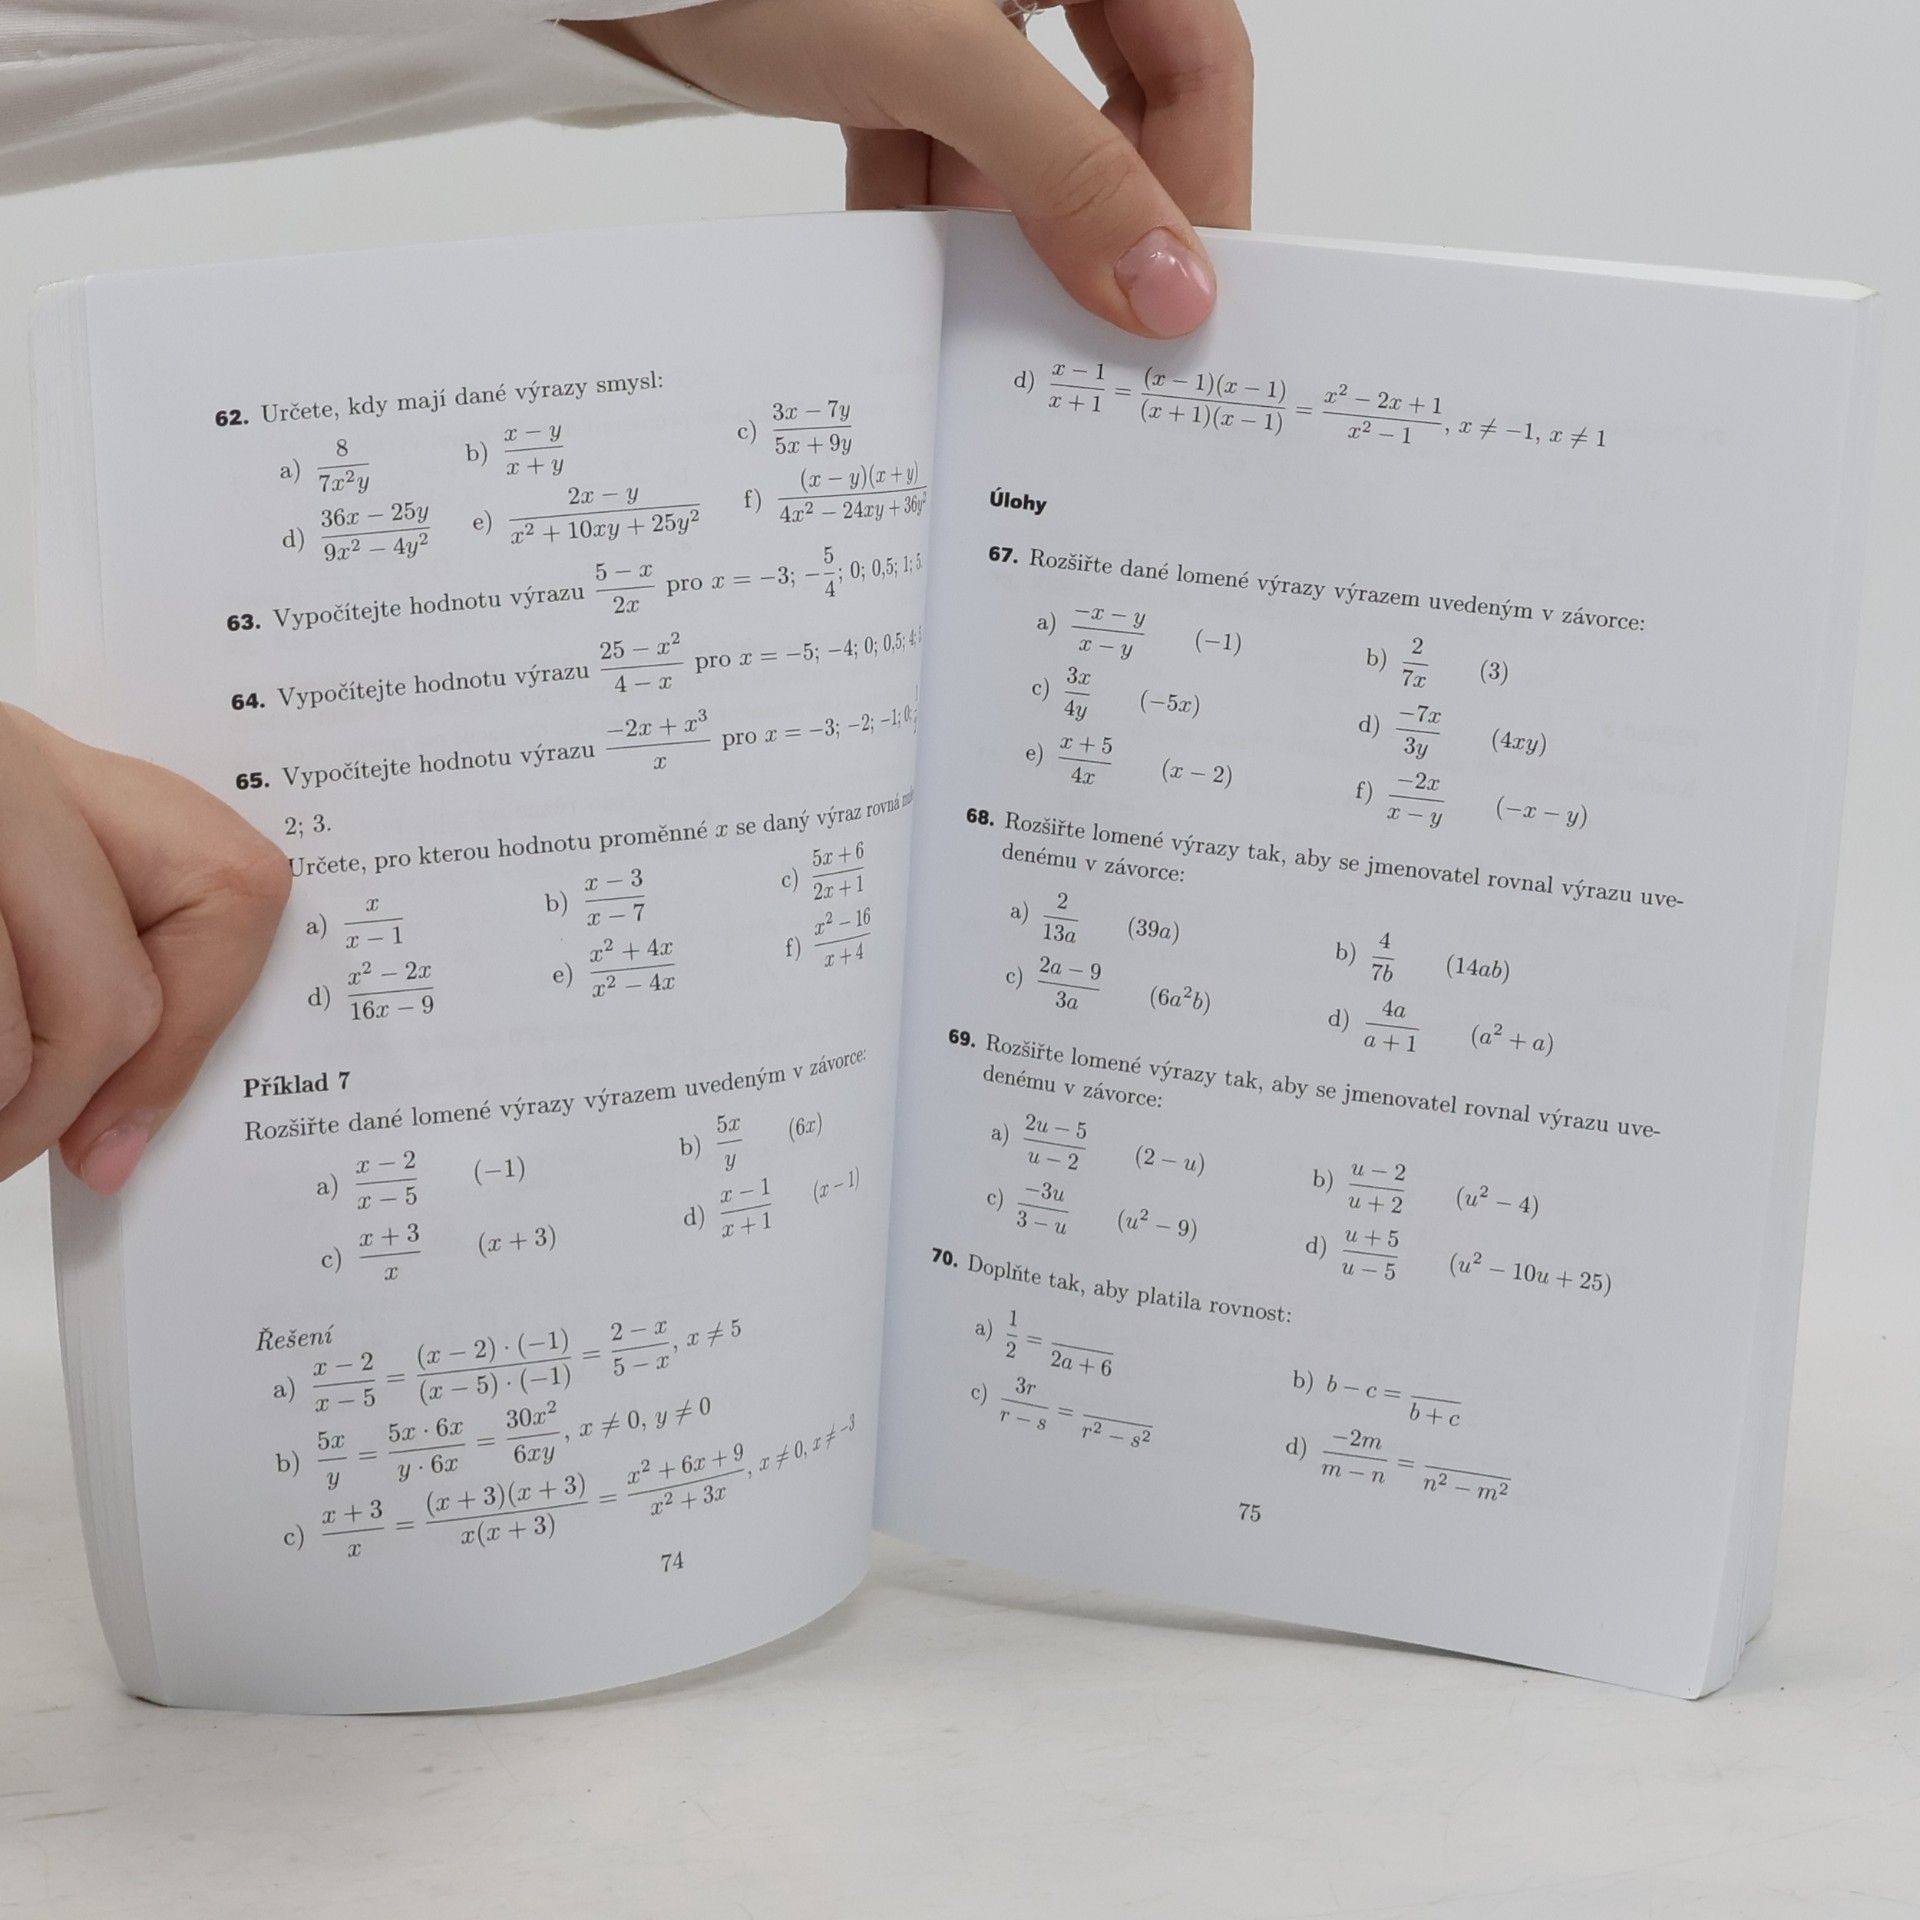 62. Určete, kdy mají dané výrazy smysl:
a) 8/(7x²y) b) (x − y)/(x + y) c) (3x − 7y)/(5x + 9y)
d) (36x − 25y)/(9x² − 4y²) e) (2x − y)/(x² + 10xy + 25y²) f) ((x − y)(x + y))/(4x² − 24xy + 36y²)
63. Vypočítejte hodnotu výrazu (5 − x)/(2x) pro x = −3; −5/4; 0; 0,5; 1; 5.
64. Vypočítejte hodnotu výrazu (25 − x²)/(4 − x) pro x = −5; −4; 0; 0,5; 4;
65. Vypočítejte hodnotu výrazu (−2x + x³)/x pro x = −3; −2; −1; 0;
2; 3.
Určete, pro kterou hodnotu proměnné x se daný výraz rovná
a) x/(x − 1) b) (x − 3)/(x − 7) c) (5x + 6)/(2x + 1)
d) (x² − 2x)/(16x − 9) e) (x² + 4x)/(x² − 4x) f) (x² − 16)/(x + 4)
Příklad 7
Rozšiřte dané lomené výrazy výrazem uvedeným v závorce:
a) (x − 2)/(x − 5) (−1) b) 5x/y (6x)
c) (x + 3)/x (x + 3) d) (x − 1)/(x + 1) (x − 1)
Řešení
a) (x − 2)/(x − 5) = ((x − 2) · (−1))/((x − 5) · (−1)) = (2 − x)/(5 − x), x ≠ 5
b) 5x/y = (5x · 6x)/(y · 6x) = 30x²/(6xy), x ≠ 0, y ≠ 0
c) (x + 3)/x = ((x + 3)(x + 3))/(x(x + 3)) = (x² + 6x + 9)/(x² + 3x), x ≠ 0, x ≠ −3
74
d) (x − 1)/(x + 1) = ((x − 1)(x − 1))/((x + 1)(x − 1)) = (x² − 2x + 1)/(x² − 1), x ≠ −1, x ≠ 1
Úlohy
67. Rozšiřte dané lomené výrazy výrazem uvedeným v závorce:
a) (−x − y)/(x − y) (−1) b) 2/(7x) (3)
c) 3x/(4y) (−5x) d) −7x/(3y) (4xy)
e) (x + 5)/(4x) (x − 2) f) −2x/(x − y) (−x − y)
68. Rozšiřte lomené výrazy tak, aby se jmenovatel rovnal výrazu uve-
denému v závorce:
a) 2/(13a) (39a) b) 4/(7b) (14ab)
c) (2a − 9)/(3a) (6a²b) d) 4a/(a + 1) (a² + a)
69. Rozšiřte lomené výrazy tak, aby se jmenovatel rovnal výrazu uve-
denému v závorce:
a) (2u − 5)/(u − 2) (2 − u) b) (u − 2)/(u + 2) (u² − 4)
c) −3u/(3 − u) (u² − 9) d) (u + 5)/(u − 5) (u² − 10u + 25)
70. Doplňte tak, aby platila rovnost:
a) 1/2 = /(2a + 6) b) b − c = /(b + c)
c) 3r/(r − s) = /(r² − s²) d) −2m/(m − n) = /(n² − m²)
75